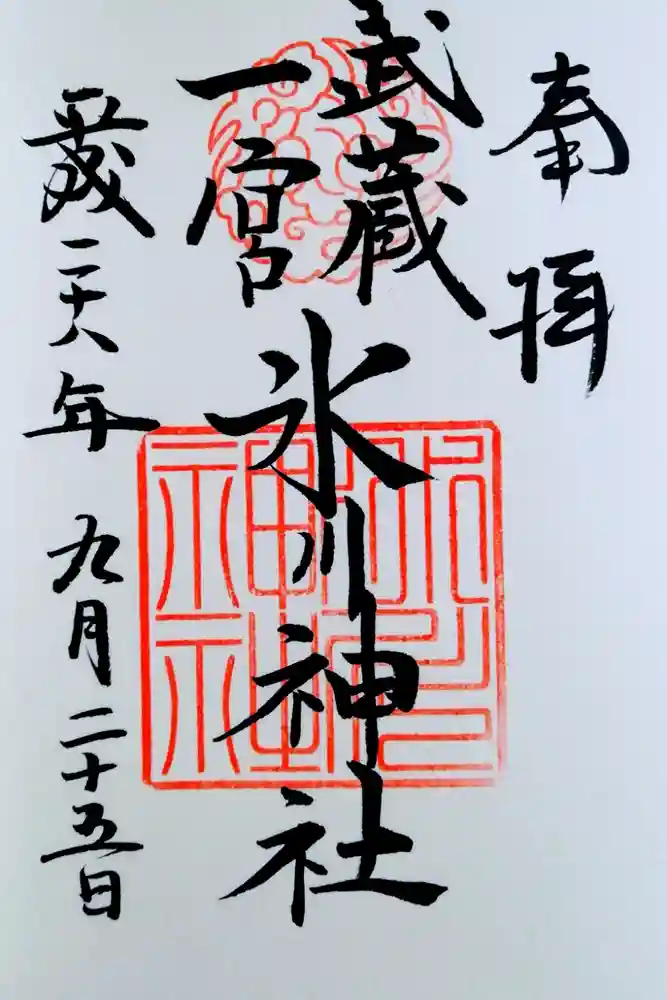 奉拝
武蔵
一宮
氷川神社
平成二十八年九月二十五日
氷川
神社